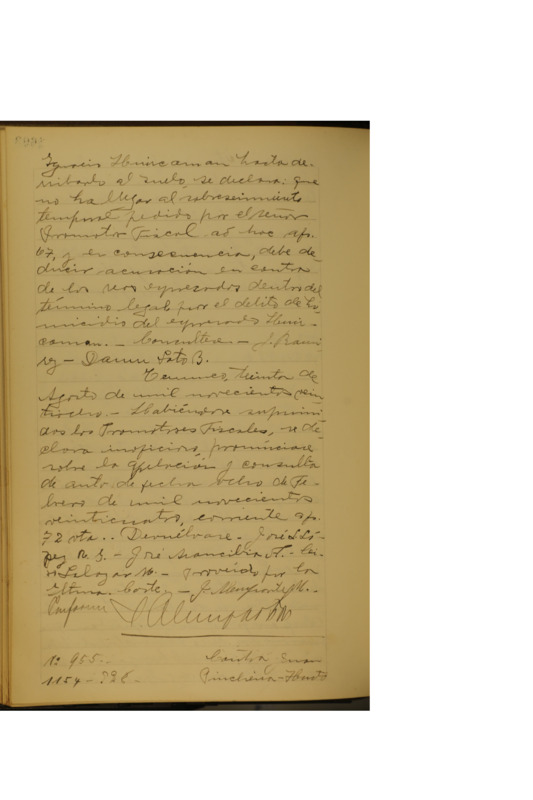 Ignacio Huircaman hasta de-
rribarlo al suelo, se declara: que
no ha lugar al sobreseimiento
temporal pedido por el señor
Promotor Fiscal ad hoc a fs.
67, y en consecuencia, debe de-
ducir acusación en contra
de los reos expresados dentro del
término legal por el delito de ho-
micidio del expresado Huir-
caman. - Consúltese. - J. Rami
rez - Soto B.
Temuco, treinta de
Agosto de mil novecientos vein
Habiéndose suprimi
dos los Promotores Fiscales, se de-
clara inoficioso pronunciarse
sobre la apelación y consulta
de auto de fecha ocho de Fe-
brero de mil novecientos
veinticuatro, corriente a fs.
72 vta.. Devuélvase. - José S. Ló-
pez R. - José Mancilla
Salazar M. - Proveído por la
Iltma. Corte, - J.
Conforme
Nº 955..
1154 - Contra Juan
Pincheira - Hurto